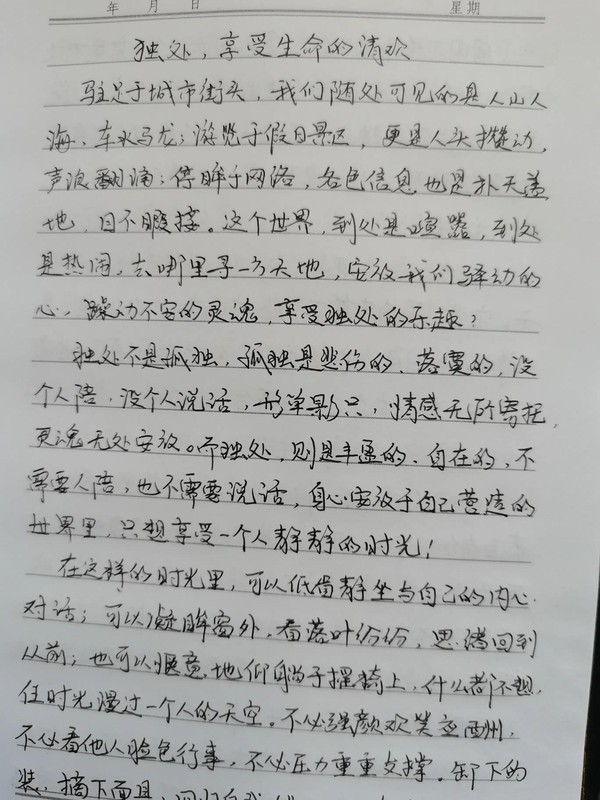 年 月 日 星期
独处，享受生命的清欢
驻足于城市街头，我们随处可见的是人山人
海、车水马龙；游览于假日景区，更是人头攒动，
声浪翻涌；停眸于网络，各色信息也是扑天盖
地，目不暇接。这个世界，到处是喧嚣，到处
是热闹，去哪里寻一方天地，安放我们驿动的
心，躁动不安的灵魂，享受独处的乐趣？
独处不是孤独，孤独是悲伤的、落寞的，没
个人陪，没个人说话，形单影只，情感无所寄托，
灵魂无处安放。而独处，则是丰盈的、自在的，不
需要人陪，也不需要说话，身心安放于自己营造的
世界里，只想享受一个人静静的时光！
在这样的时光里，可以低眉静坐与自己的内心
对话；可以凝眸窗外，看落叶纷纷，思绪回到
从前；也可以惬意地仰躺于摇椅上，什么都不想，
任时光漫过一个人的天空。不必强颜欢笑
不必看他人脸色行事，不必压力重重支撑。卸下的
装，摘下面具，回归自我